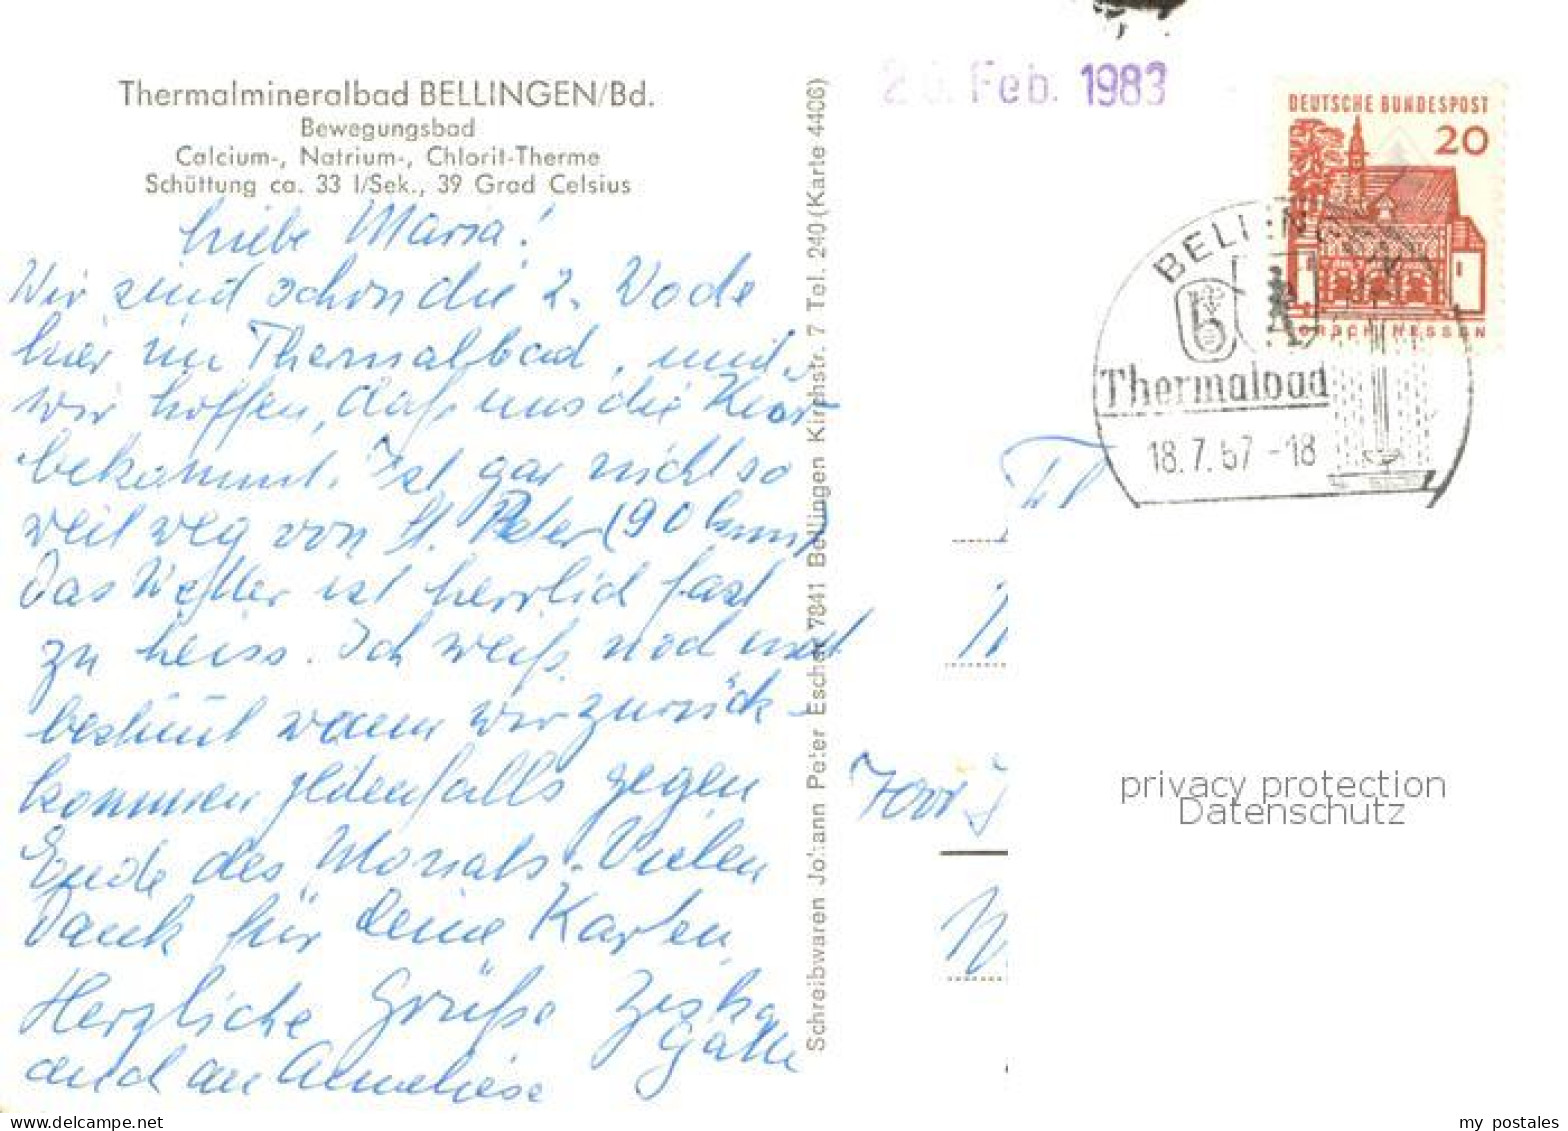 Thermalmineralbad BELLINGEN/Bd.
Bewegungsbad
Calcium-, Natrium-, Chlorit-Therme
Schüttung ca. 33 l/Sek., 39 Grad Celsius
Liebe Maria!
Wir sind schon die 2. Woche
hier im Thermalbad, und
wir hoffen, daß uns die Kur
bekommt. Ist gar nicht so
weit weg von St. Peter (90 km)
Das Wetter ist herrlich fast
zu heiss. Ich weiß noch nicht
bestimmt wann wir zurück-
kommen jedenfalls gegen
Ende des Monats. Vielen
Dank für deine Karten
Herzliche Grüße
auch an Anneliese
Schreibwaren Johann Peter Escher 7841 Bellingen Kirchstr. 7 Tel. 240 (Karte 4406)
Feb. 1983
DEUTSCHE BUNDESPOST
20
LORSCH/HESSEN
BELLINGEN
Thermalbad
18.7.67-18
privacy protection
Datenschutz
www.delcampe.net
my_postales